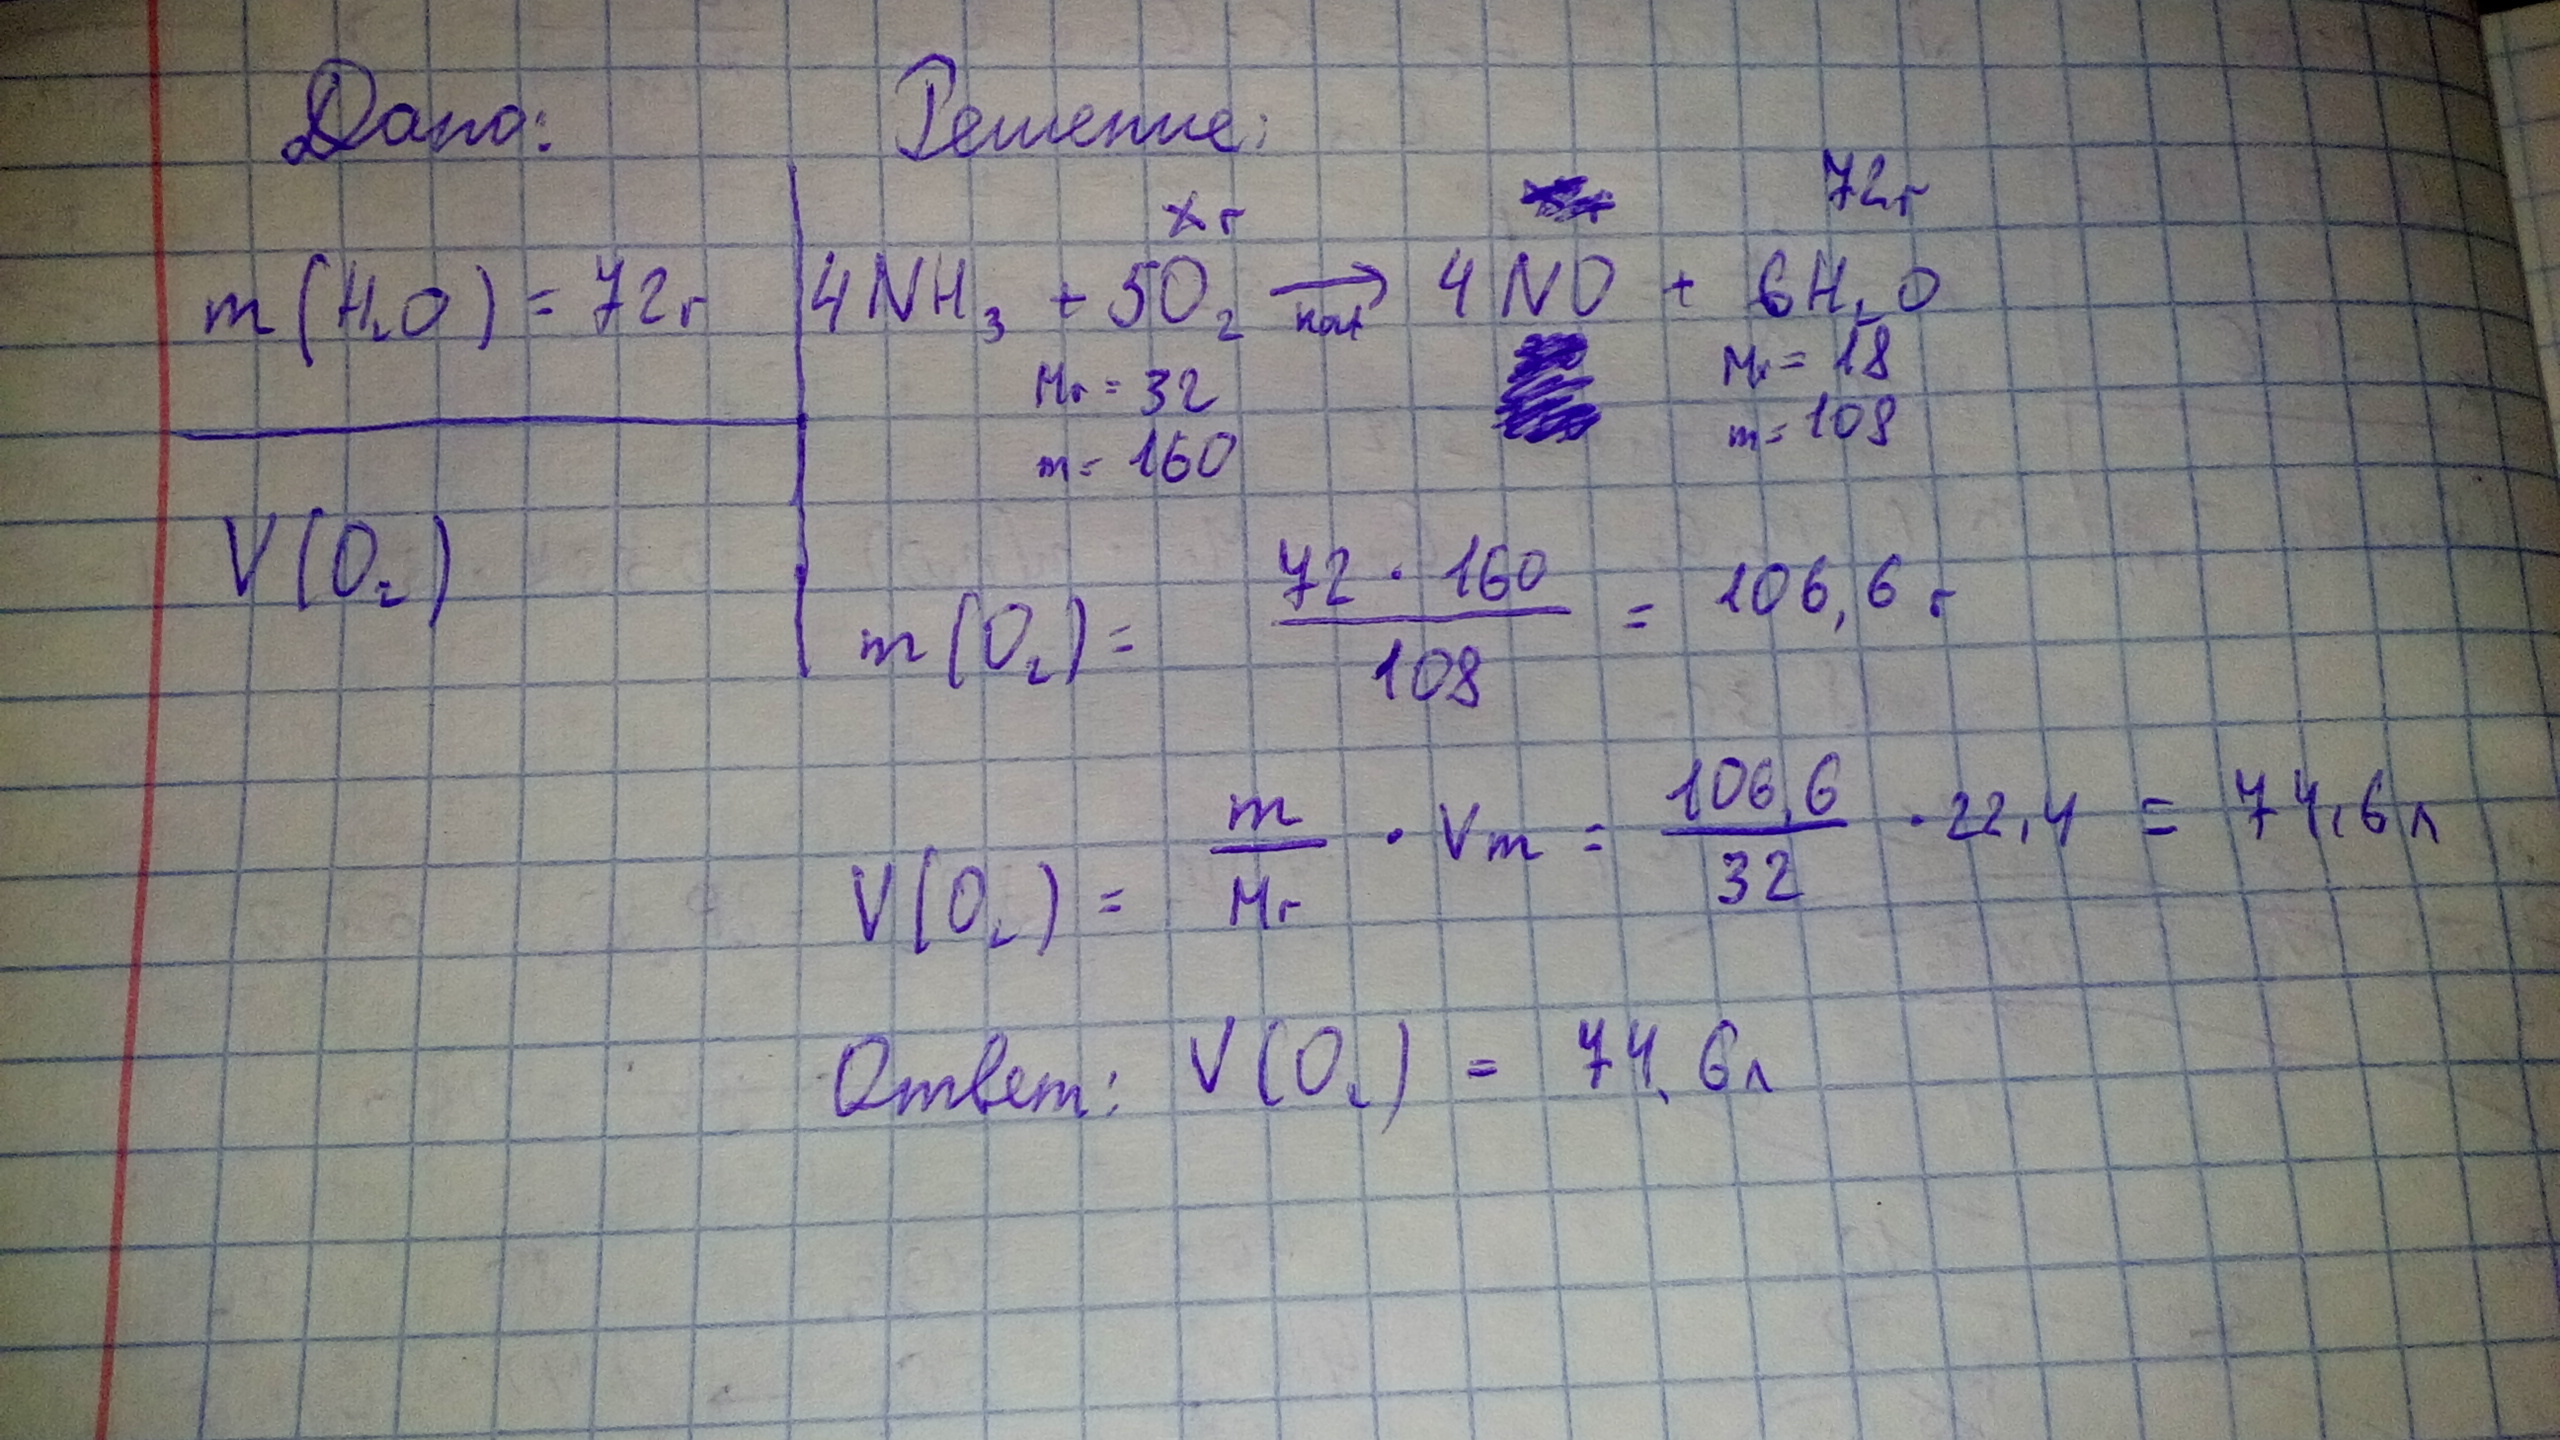 Дано:
m(H₂O) = 72г
V(O₂)
Решение:
xг 72г
4NH₃ + 5O₂ → 4NO + 6H₂O
кат
Mr = 32 Mr = 18
m = 160 m = 108
m(O₂) = 72 · 160 / 108 = 106,6 г
V(O₂) = m / Mr · Vm = 106,6 / 32 · 22,4 = 74,6 л
Ответ: V(O₂) = 74,6 л